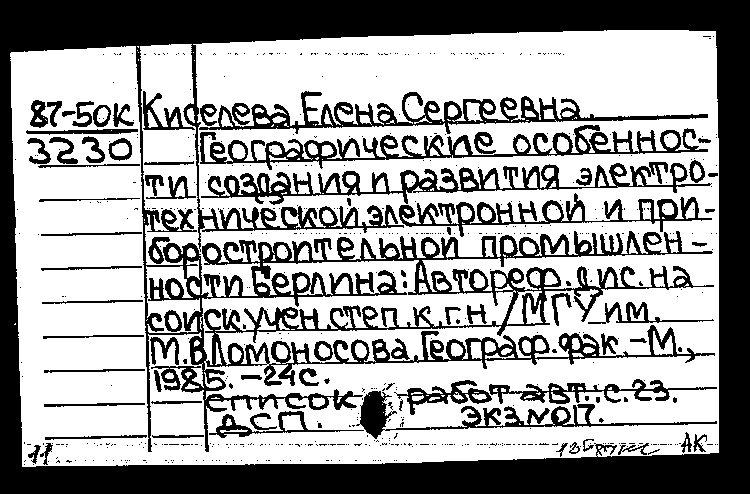 87-50К Киселева, Елена Сергеевна.
3230 Географические особеннос-
ти создания и развития электро-
технической, электронной и при-
боростроительной промышлен-
ности Берлина: Автореф. дис. на
соиск. учен. степ. к.г.н. /МГУ им.
М.В.Ломоносова. Географ. фак. -М.,
1985. -24с.
список работ авт.: с. 23.
ДСП. экз. №017.
11 АК